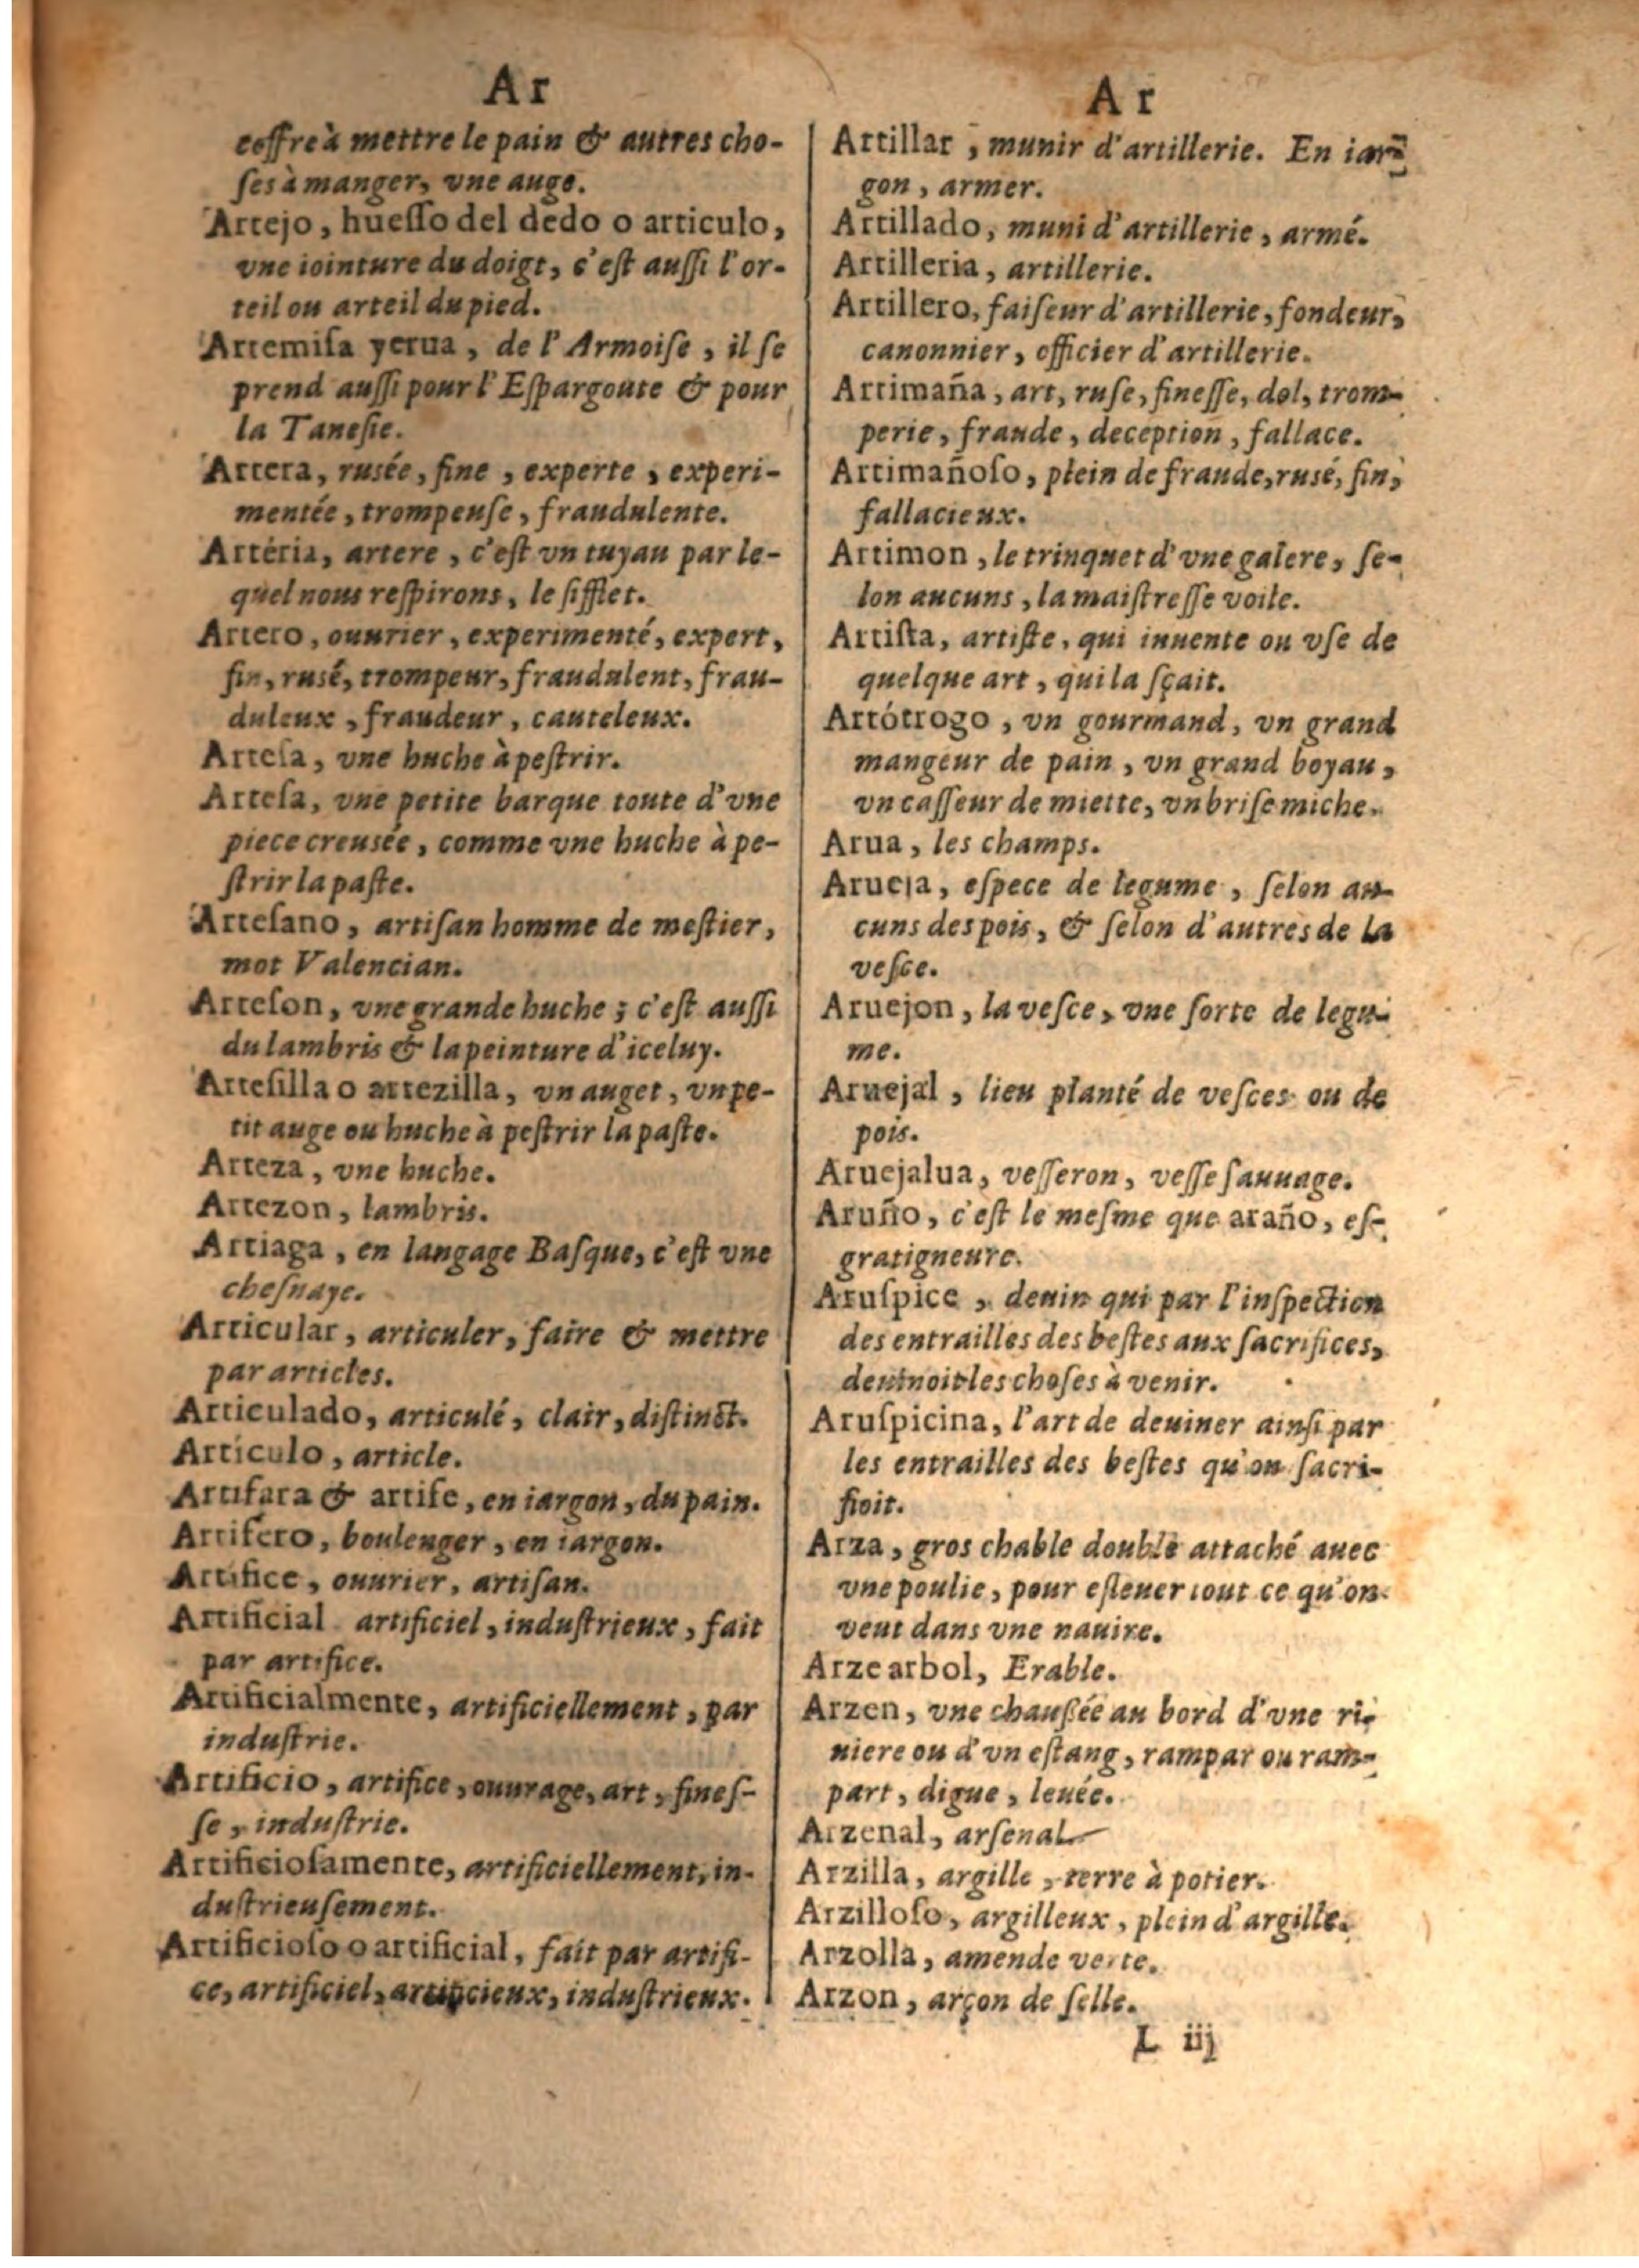 Ar
coffre à mettre le pain & autres cho-
ſes à manger, vne auge.
Artejo, hueſſo del dedo o articulo,
vne iointure du doigt, c'eſt auſſi l'or-
teil ou arteil du pied.
Artemiſa yerua, de l'Armoiſe, il ſe
prend auſſi pour l'Eſpargoute & pour
la Taneſie.
Artera, rusée, fine, experte, experi-
mentée, trompeuſe, fraudulente.
Artéria, artere, c'eſt vn tuyau par le-
quel nous reſpirons, le ſifflet.
Artero, ouurier, experimenté, expert,
fin, rusé, trompeur, fraudulent, frau-
duleux, fraudeur, cauteleux.
Arteſa, vne huche à peſtrir.
Arteſa, vne petite barque toute d'vne
piece creusée, comme vne huche à pe-
ſtrir la paſte.
Arteſano, artiſan homme de meſtier,
mot Valencian.
Arteſon, vne grande huche; c'eſt auſſi
du lambris & la peinture d'iceluy.
Arteſilla o artezilla, vn auget, vn pe-
tit auge ou huche à peſtrir la paſte.
Arteza, vne huche.
Artezon, lambris.
Artiaga, en langage Baſque, c'eſt vne
cheſnaye.
Articular, articuler, faire & mettre
par articles.
Articulado, articulé, clair, diſtinct.
Artículo, article.
Artifara & artife, en iargon, du pain.
Artifero, boulenger, en iargon.
Artifice, ouurier, artiſan.
Artificial artificiel, induſtrieux, fait
par artifice.
Artificialmente, artificiellement, par
induſtrie.
Artificio, artifice, ouurage, art, fineſ-
ſe, induſtrie.
Artificioſamente, artificiellement, in-
duſtrieuſement.
Artificioſo o artificial, fait par artifi-
ce, artificiel, artificieux, induſtrieux.
Ar
Artillar, munir d'artillerie. En iar-
gon, armer.
Artillado, muni d'artillerie, armé.
Artilleria, artillerie.
Artillero, faiſeur d'artillerie, fondeur,
canonnier, officier d'artillerie.
Artimaña, art, ruſe, fineſſe, dol, trom-
perie, fraude, deception, fallace.
Artimañoſo, plein de fraude, rusé, fin,
fallacieux.
Artimon, le trinquet d'vne galere, ſe-
lon aucuns, la maiſtreſſe voile.
Artiſta, artiſte, qui inuente ou vſe de
quelque art, qui la ſçait.
Artótrogo, vn gourmand, vn grand
mangeur de pain, vn grand boyau,
vn caſſeur de miette, vn briſe miche.
Arua, les champs.
Arueja, eſpece de legume, ſelon au-
cuns des pois, & ſelon d'autres de la
veſce.
Aruejon, la veſce, vne ſorte de legu-
me.
Aruejal, lieu planté de veſces ou de
pois.
Aruejalua, veſſeron, veſſe ſauuage.
Aruño, c'eſt le meſme que araño, eſ-
gratigneure.
Aruſpice, deuin qui par l'inſpection
des entrailles des beſtes aux ſacrifices,
deuinoit les choſes à venir.
Aruſpicina, l'art de deuiner ainſi par
les entrailles des beſtes qu'on ſacri-
fioit.
Arza, gros chable double attaché auec
vne poulie, pour eſleuer tout ce qu'on
veut dans vne nauire.
Arze arbol, Erable.
Arzen, vne chauſſée au bord d'vne ri-
uiere ou d'vn eſtang, rampar ou ram-
part, digue, leuée.
Arzenal, arſenal
Arzilla, argille, terre à potier.
Arzilloſo, argilleux, plein d'argille.
Arzolla, amende verte.
Arzon, arçon de ſelle.
L iij